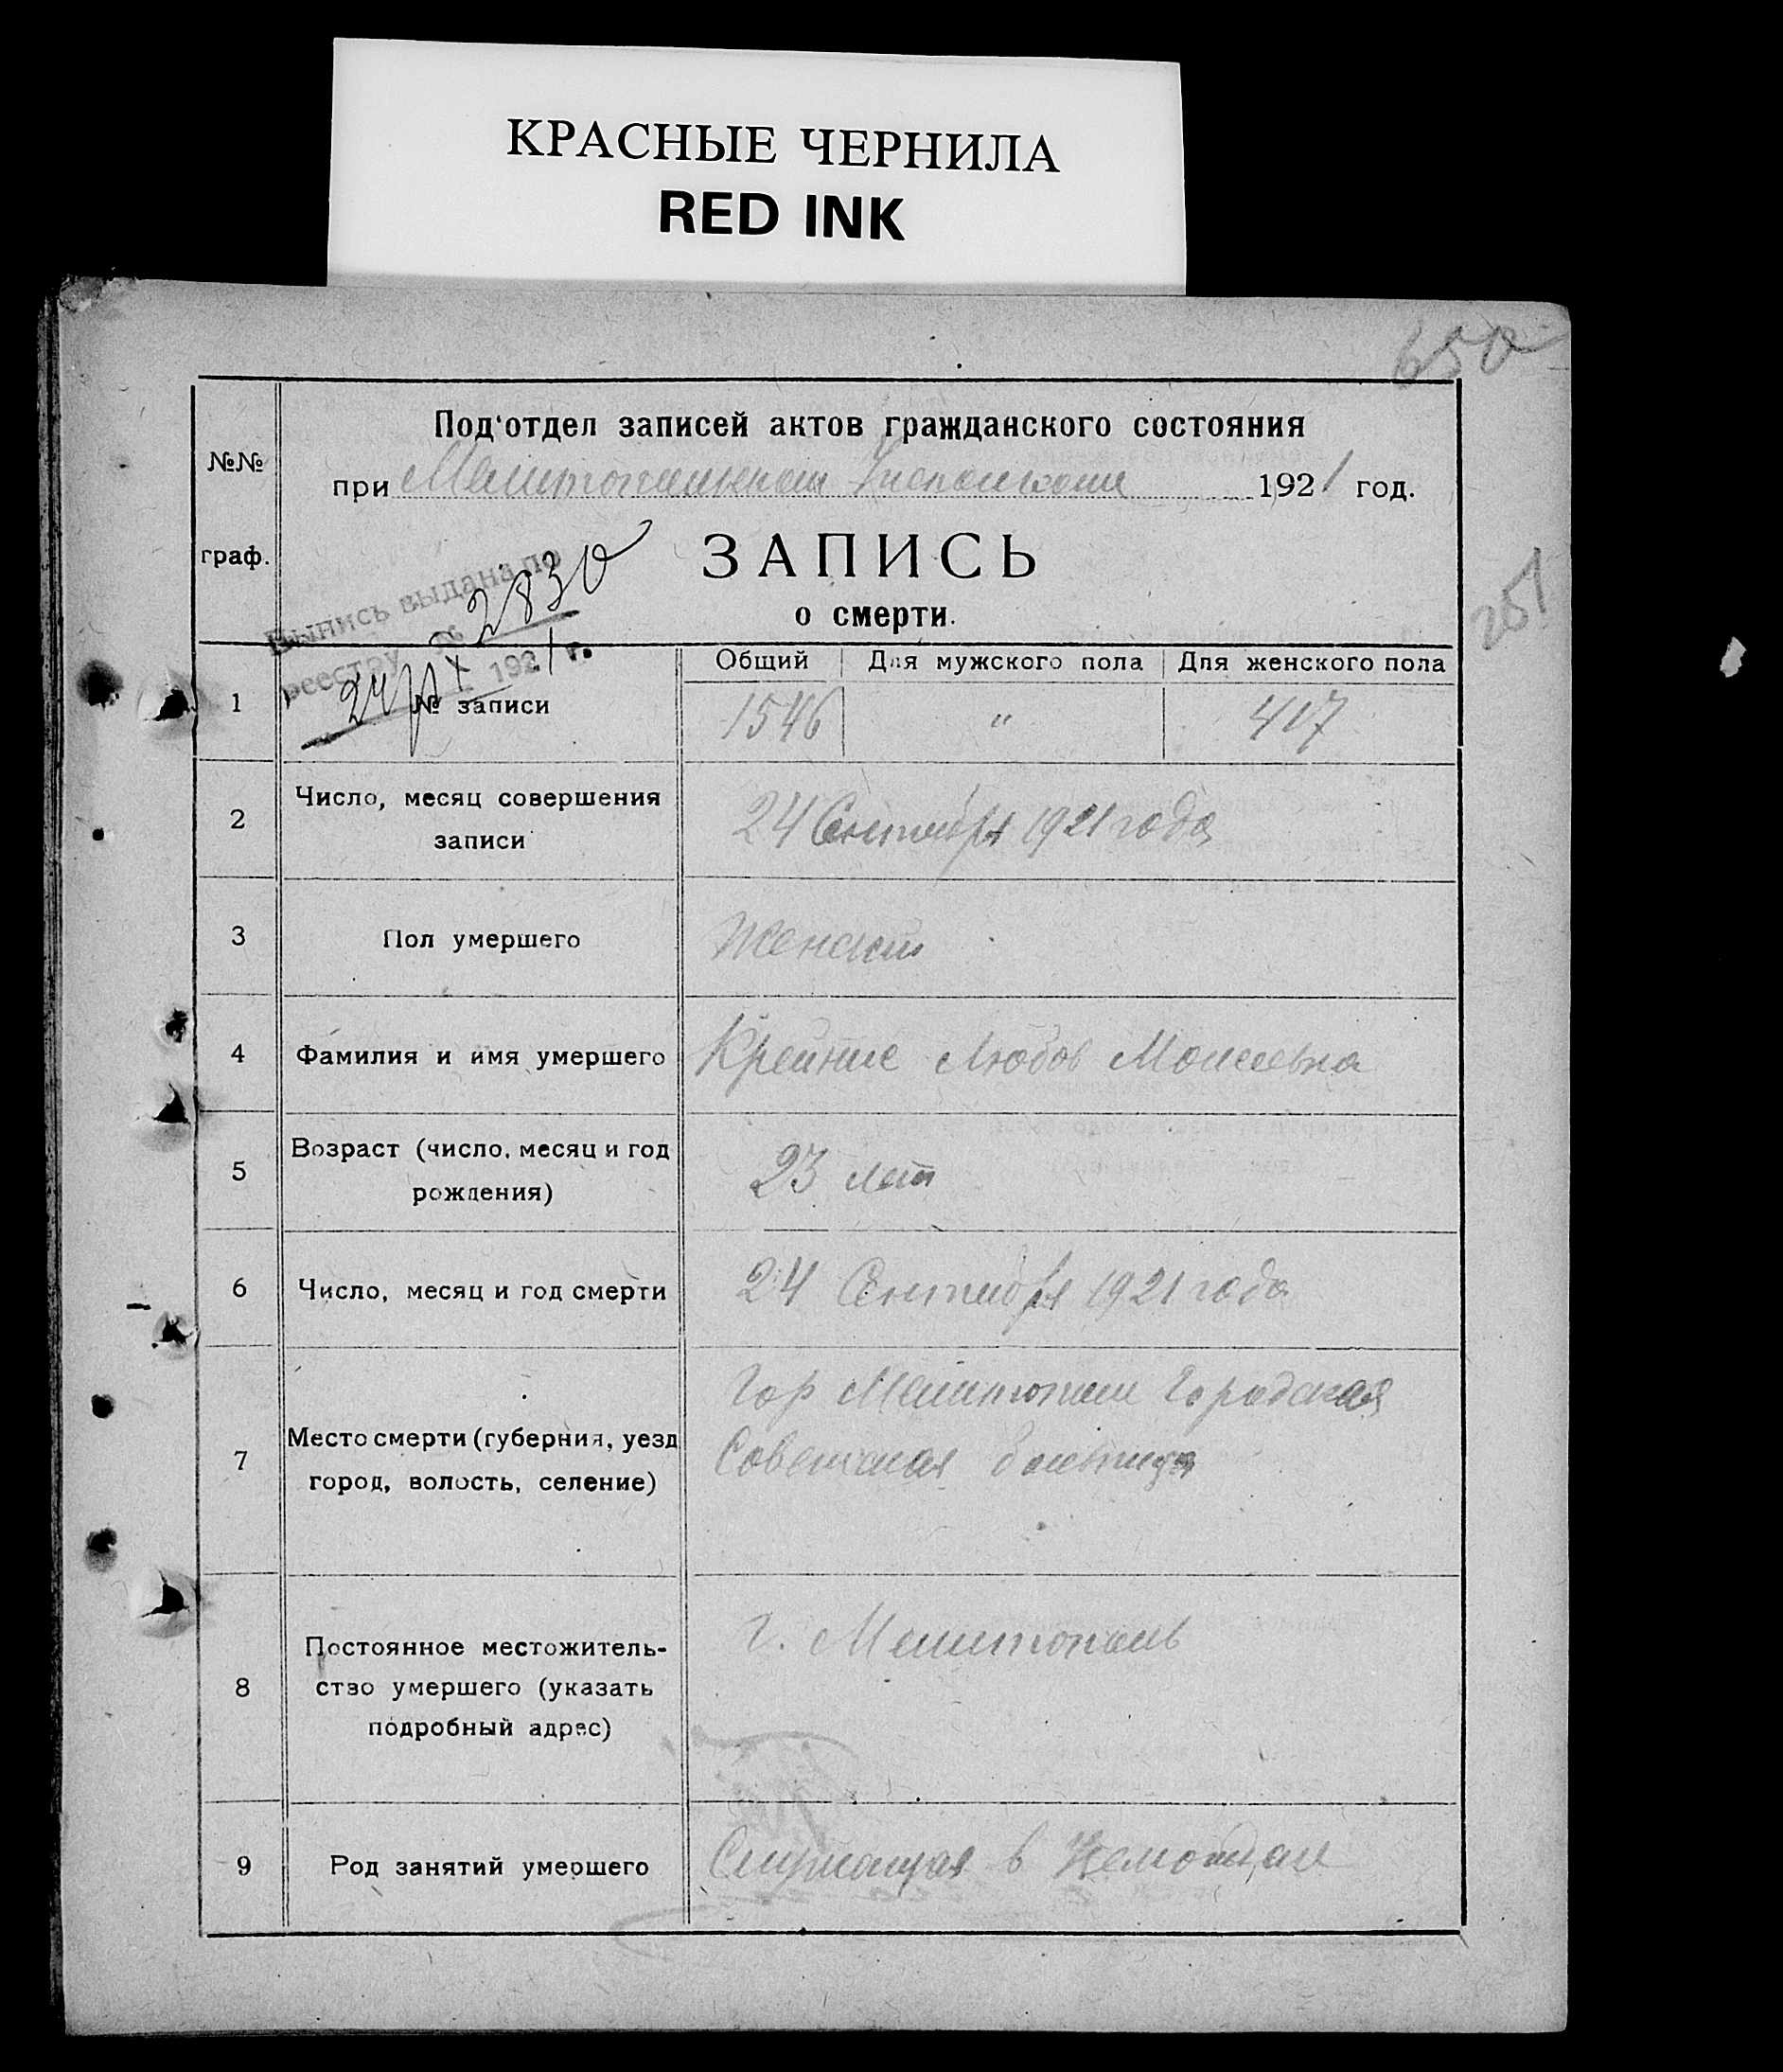 КРАСНЫЕ ЧЕРНИЛА
RED INK
650
Под'отдел записей актов гражданского состояния
№№
при Мелитопольском Исполкоме 1921 год.
граф.
ЗАПИСЬ
о смерти.
251
Выпись выдана по
реестру № 2830
24/IX 1921 г.
Общий Для мужского пола Для женского пола
1 № записи 1546 " 417
2 Число, месяц совершения
записи
24 Сентября 1921 года
3 Пол умершего Женский
4 Фамилия и имя умершего Любов Моисеевна
5 Возраст (число, месяц и год
рождения)
23 лет
6 Число, месяц и год смерти 24 Сентября 1921 года
7 Место смерти (губерния, уезд
город, волость, селение)
Гор Мелитополь Городская
Советская больница
8 Постоянное местожитель-
ство умершего (указать
подробный адрес)
г. Мелитополь
9 Род занятий умершего Служащая в